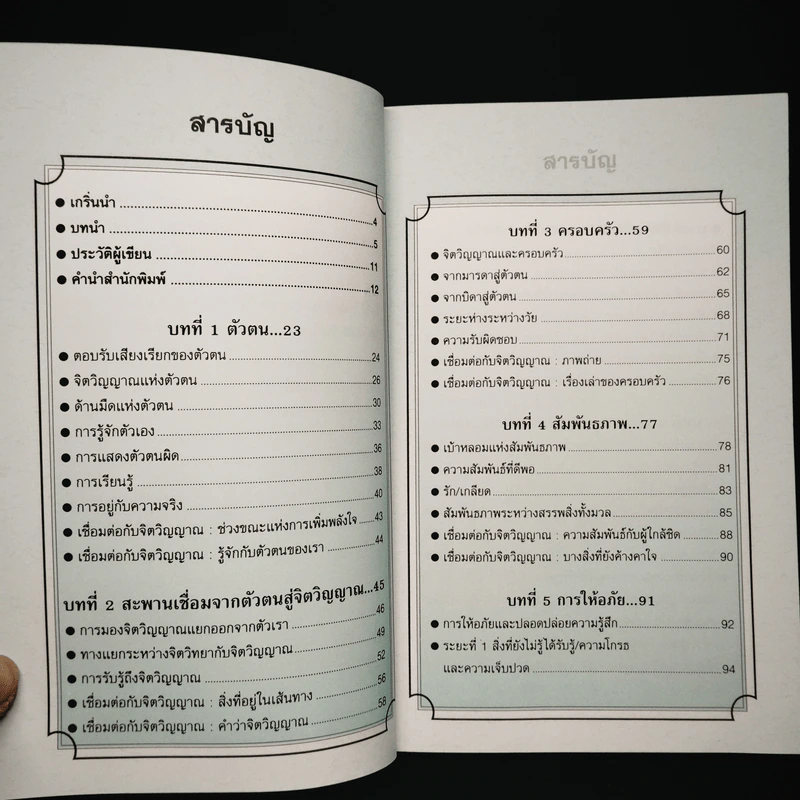 สารบัญ
● เกริ่นนำ ........ 4
● บทนำ ........ 5
● ประวัติผู้เขียน ........ 11
● คำนำสำนักพิมพ์ ........ 12
บทที่ 1 ตัวตน...23
● ตอบรับเสียงเรียกของตัวตน ........ 24
● จิตวิญญาณแห่งตัวตน ........ 26
● ด้านมืดแห่งตัวตน ........ 30
● การรู้จักตัวเอง ........ 33
● การแสดงตัวตนผิด ........ 36
● การเรียนรู้ ........ 38
● การอยู่กับความจริง ........ 40
● เชื่อมต่อกับจิตวิญญาณ : ช่วงขณะแห่งการเพิ่มพลังใจ ..... 43
● เชื่อมต่อกับจิตวิญญาณ : รู้จักกับตัวตนของเรา ........ 44
บทที่ 2 สะพานเชื่อมจากตัวตนสู่จิตวิญญาณ...45
● การมองจิตวิญญาณแยกออกจากตัวเรา ........ 46
● ทางแยกระหว่างจิตวิทยากับจิตวิญญาณ ........ 49
● การรับรู้ถึงจิตวิญญาณ ........ 52
● เชื่อมต่อกับจิตวิญญาณ : สิ่งที่อยู่ในเส้นทาง ........ 56
● เชื่อมต่อกับจิตวิญญาณ : คำว่าจิตวิญญาณ ........ 58
สารบัญ
บทที่ 3 ครอบครัว...59
● จิตวิญญาณและครอบครัว ........ 60
● จากมารดาสู่ตัวตน ........ 62
● จากบิดาสู่ตัวตน ........ 65
● ระยะห่างระหว่างวัย ........ 68
● ความรับผิดชอบ ........ 71
● เชื่อมต่อกับจิตวิญญาณ : ภาพถ่าย ........ 75
● เชื่อมต่อกับจิตวิญญาณ : เรื่องเล่าของครอบครัว ........ 76
บทที่ 4 สัมพันธภาพ...77
● เบ้าหลอมแห่งสัมพันธภาพ ........ 78
● ความสัมพันธ์ที่ดีพอ ........ 81
● รัก/เกลียด ........ 83
● สัมพันธภาพระหว่างสรรพสิ่งทั้งมวล ........ 85
● เชื่อมต่อกับจิตวิญญาณ : ความสัมพันธ์กับผู้ใกล้ชิด ........ 88
● เชื่อมต่อกับจิตวิญญาณ : บางสิ่งที่ยังค้างคาใจ ........ 90
บทที่ 5 การให้อภัย...91
● การให้อภัยและปลอดปล่อยความรู้สึก ........ 92
● ระยะที่ 1 สิ่งที่ยังไม่รู้ได้รับรู้/ความโกรธ
และความเจ็บปวด ........ 94